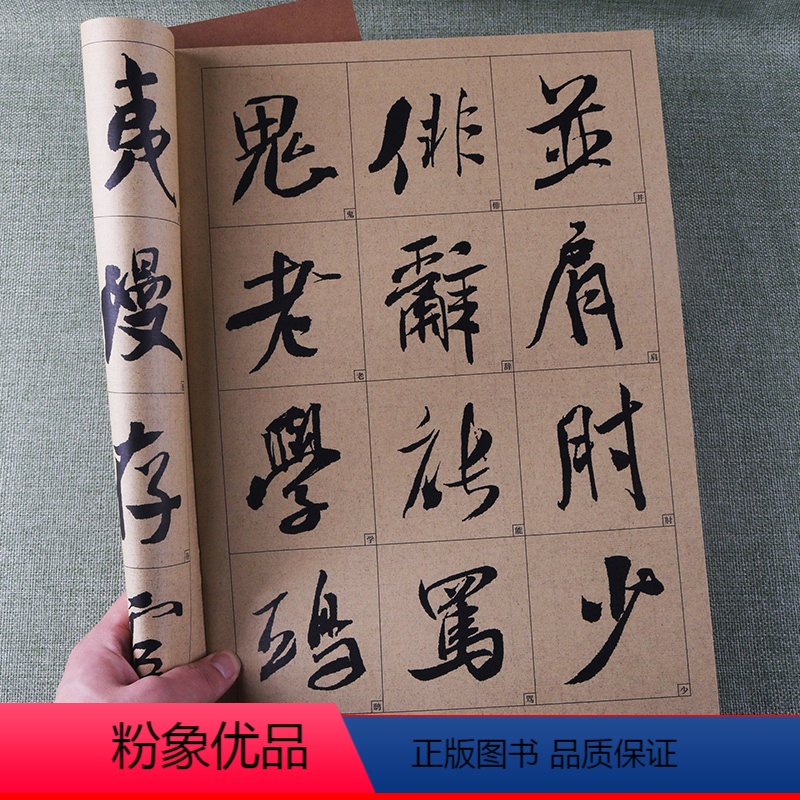 並 并
肩 肩
肘 肘
少 少
俳 俳
辭 辞
能 能
罵 骂
鬼 鬼
老 老
學 学
夷
存
粉象优品
正版图书 品质保证